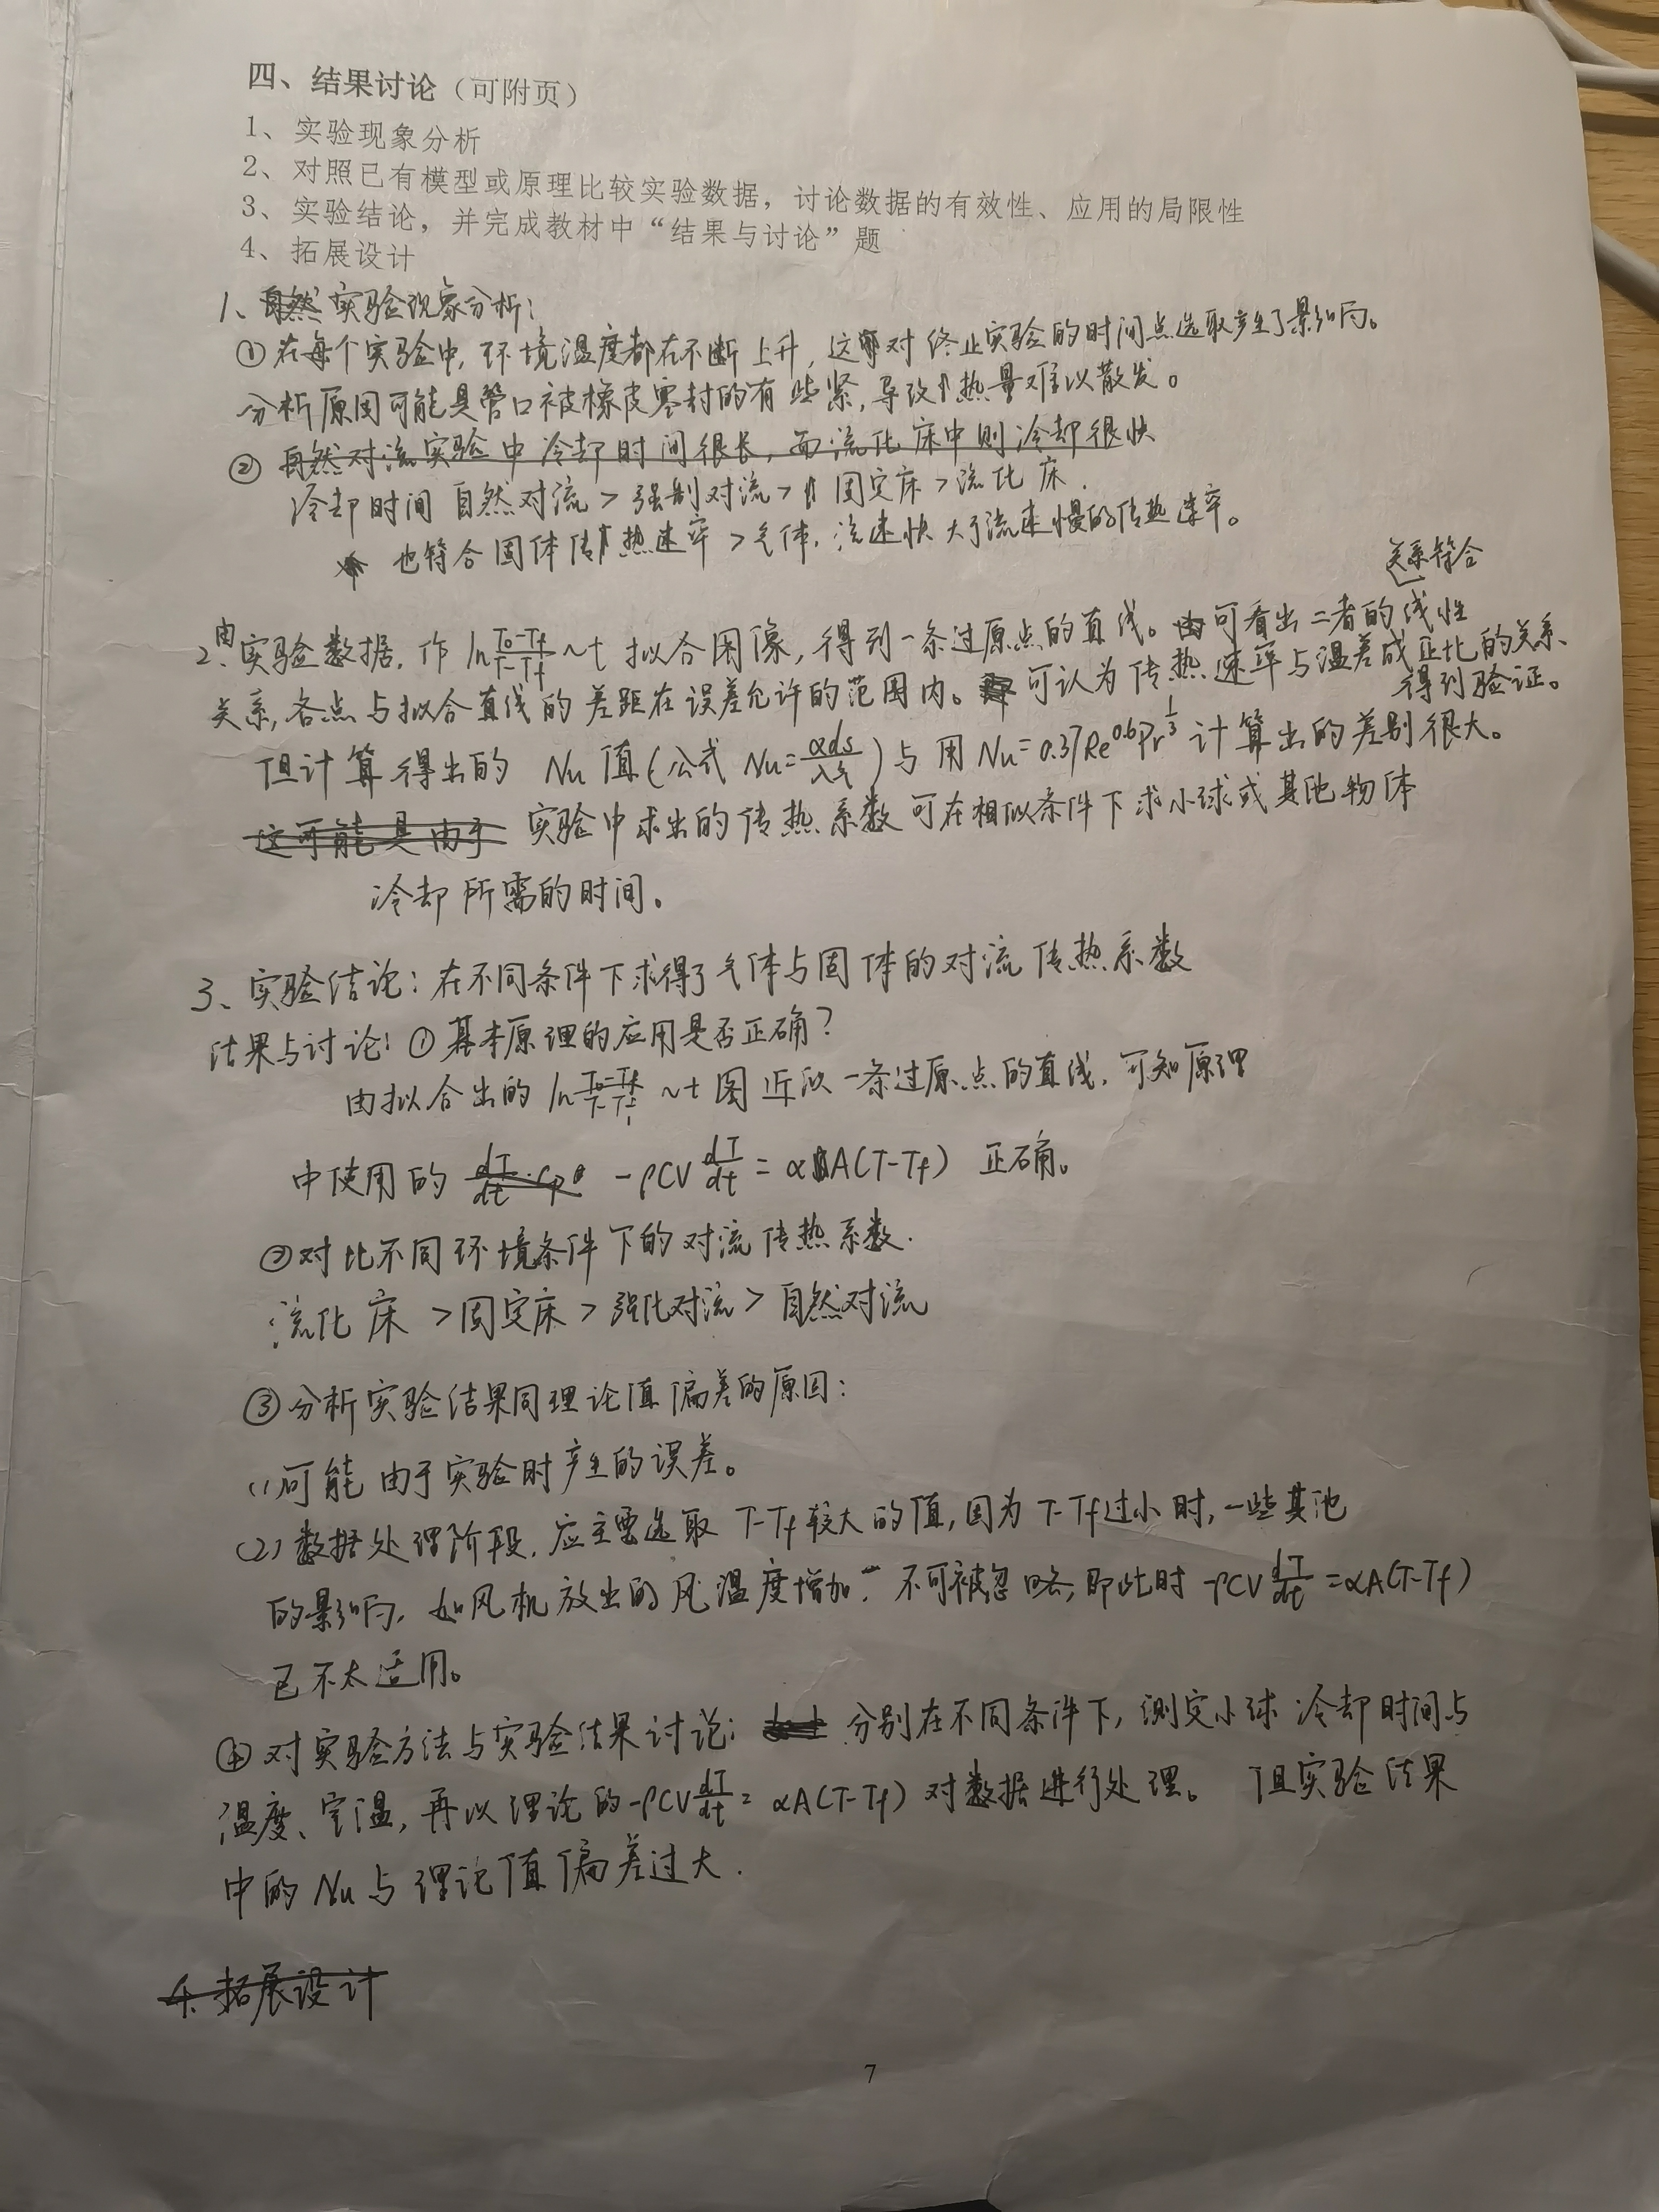 四、结果讨论（可附页）
1、实验现象分析
2、对照已有模型或原理比较实验数据，讨论数据的有效性、应用的局限性
3、实验结论，并完成教材中“结果与讨论”题
4、拓展设计
1、自然实验现象分析：
①在每个实验中，环境温度都在不断上升，这对终止实验的时间点选取产生了影响。
分析原因可能是管口被橡皮塞封的有些紧，导致热量难以散发。
②自然对流实验中冷却时间很长，而流化床中则冷却很快
冷却时间 自然对流＞强制对流＞固定床＞流化床.
也符合固体传热速率＞气体，流速快大于流速慢的传热速率。
关系符合
2、由实验数据，作 ln(T₀-Tf)/(T-Tf) ~t 拟合图像，得到一条过原点的直线。可看出二者的线性
关系，各点与拟合直线的差距在误差允许的范围内。可认为传热速率与温差成正比的关系
得到验证。
但计算得出的 Nu 值（公式 Nu=αds/λf）与用 Nu=0.37Re^0.6Pr^1/3 计算出的差别很大。
这可能是由于 实验中求出的传热系数可在相似条件下求小球或其他物体
冷却所需的时间。
3、实验结论：在不同条件下求得了气体与固体的对流传热系数
结果与讨论：①基本原理的应用是否正确？
由拟合出的 ln(T₀-Tf)/(T-Tf) ~t 图近似一条过原点的直线，可知原理
中使用的 dT/dt·Cp -ρCV dT/dt = αA(T-Tf) 正确。
②对比不同环境条件下的对流传热系数.
流化床＞固定床＞强化对流＞自然对流
③分析实验结果同理论值偏差的原因：
(1)可能由于实验时产生的误差。
(2)数据处理阶段，应主要选取 T-Tf较大的值，因为 T-Tf过小时，一些其他
的影响，如风机放出的风温度增加，不可被忽略，即此时 -ρCV dT/dt = αA(T-Tf)
已不太适用。
④对实验方法与实验结果讨论： 分别在不同条件下，测定小球冷却时间与
温度、室温，再以理论的 -ρCV dT/dt = αA(T-Tf) 对数据进行处理。 但实验结果
中的 Nu 与理论值偏差过大.
4.拓展设计
7